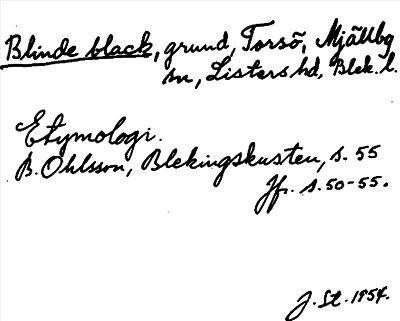 Blinde black, grund, Torsö, Mjällby
sn, Listers hd, Blek. l.
Etymologi.
B. Ohlsson, Blekingskusten, s. 55
Jfr. s. 50-55.
J. St. 1954.